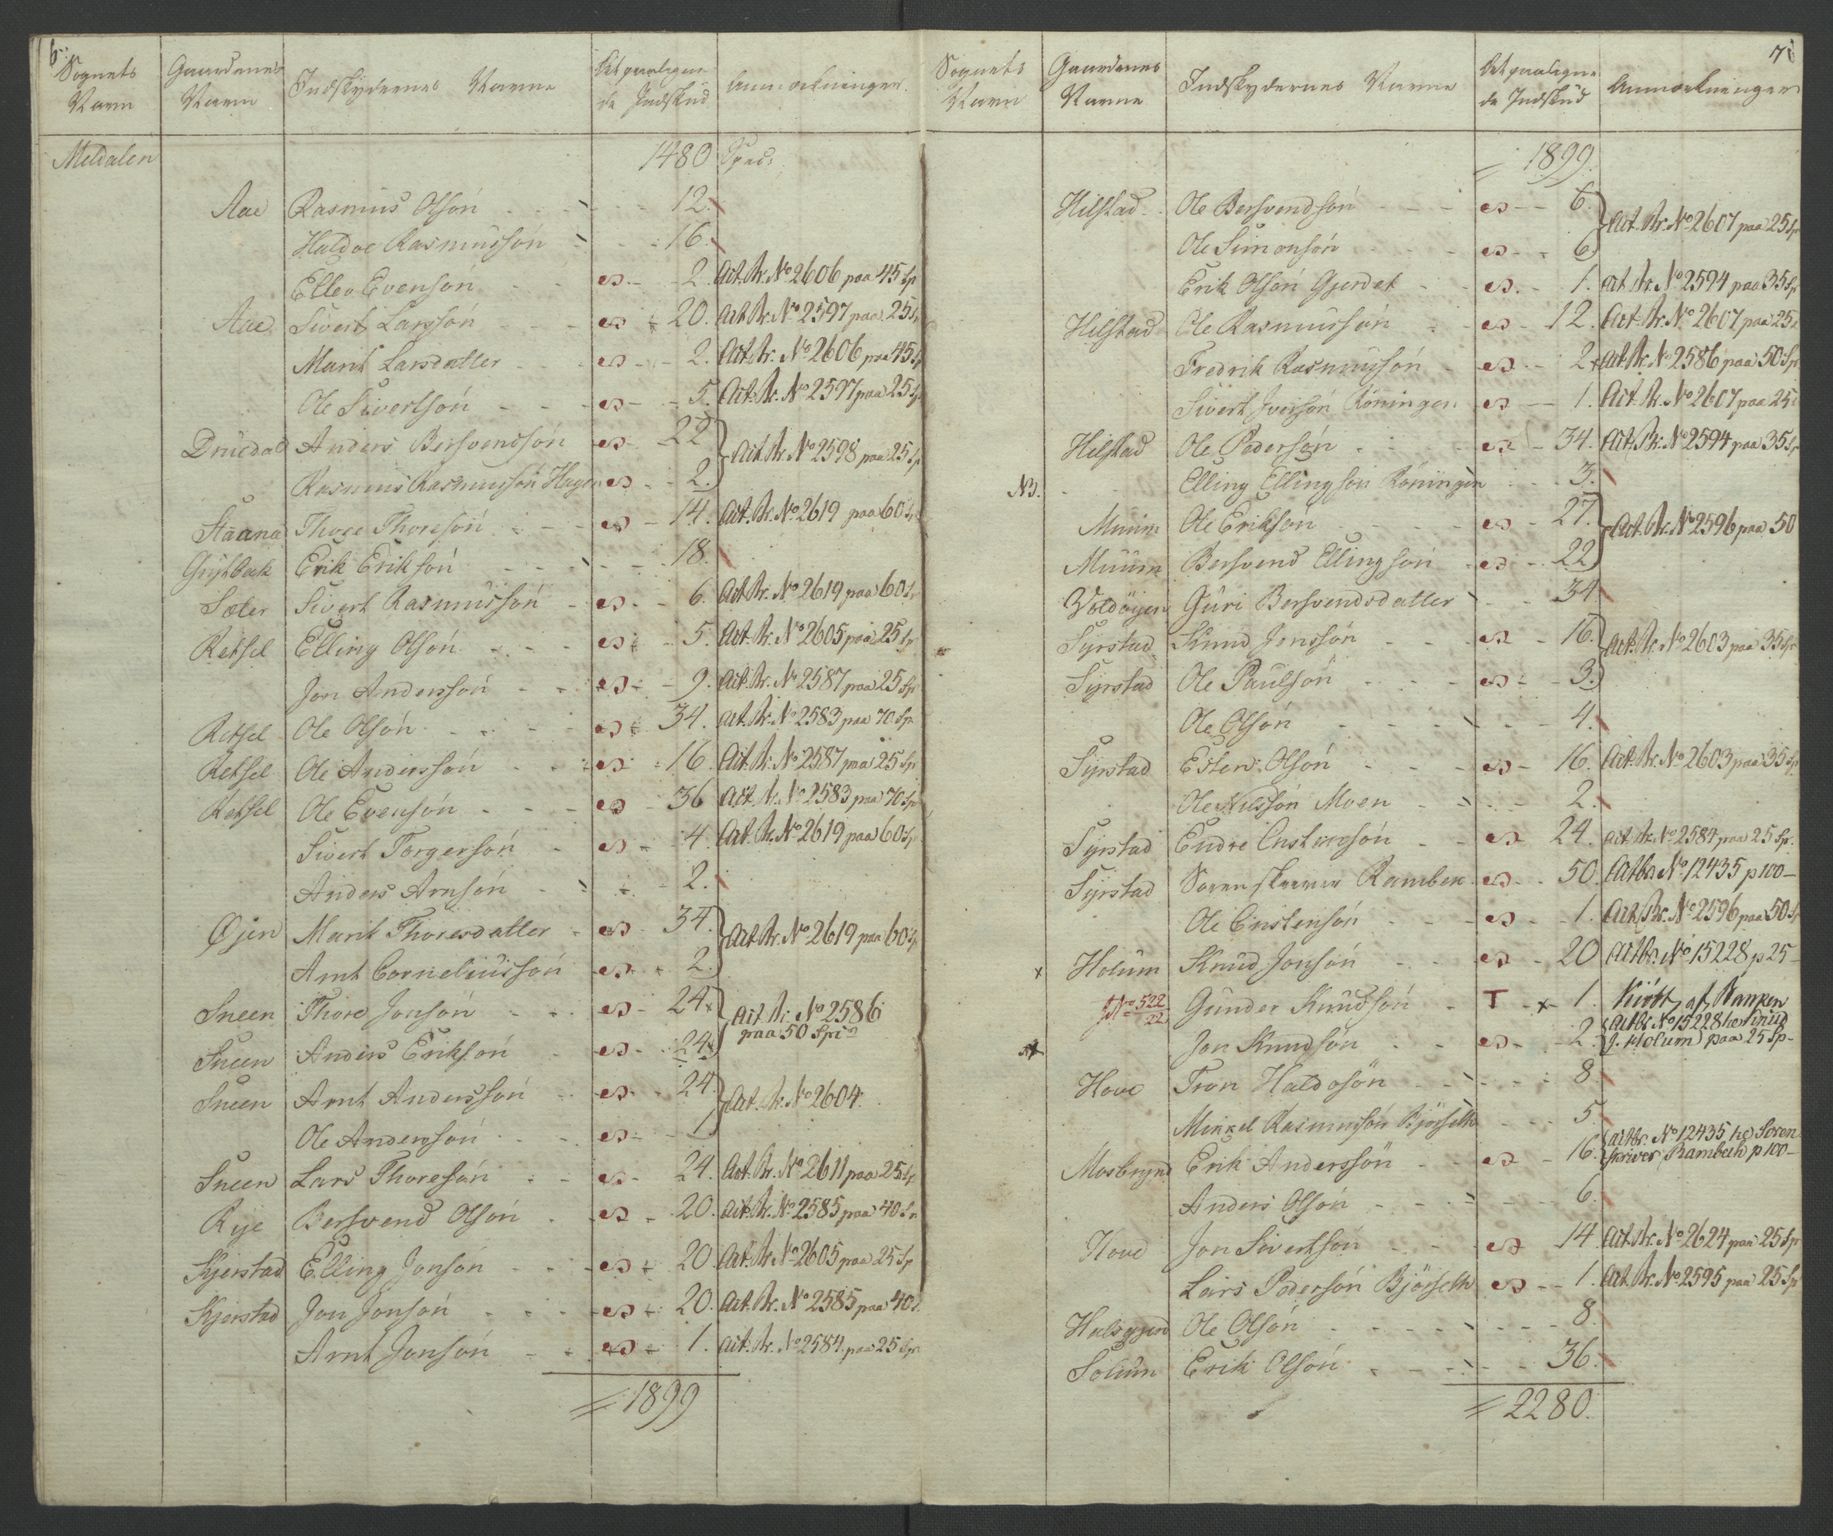 6.
Sognets Navn | Gaardenes Navn | Indskydernes Navne | Det paaligende Indskud | Anmærkninger.
Meldalen 1480 Spec:
Aae Rasmus Olsón 12.
Haldoe Rasmussón 16.
Ellev Evensón 2. Act. Nr. No 2606 paa 45 Sp
Aae Sivert Larssón 20. Act Nr. No 2597 paa 25 Sp
Marit Larsdatter 2. Act. Nr. No 2606 paa 45 Sp
Ole Sivertsón 5. Act. Nr. No 2597 paa 25 Sp
Druedal Anders Bersvendsón 22 Act Nr No 2598 paa 25 Sp
Rasmus Rasmussón Hagen 2.
Staana Thore Thoresón 14. Act. Nr. No 2619 paa 60 Sp
Grytbak Erik Eriksón 18.
Sæter Sivert Rasmussón 6. Act Nr. No 2619 paa 60 Sp
Retsel Elling Olsón 5. Act. Nr. No 2605 paa 25 Sp
Jon Anderssón 9. Act. Nr. No 2587 paa 25 Sp
Retsel Ole Olsón 34. Act. Nr. No 2583 paa 70 Sp.
Retsel Ole Anderssón 16. Act. Nr. No 2587 paa 25 Sp
Retsel Ole Evensón 36 Act. Nr. No 2583 paa 70 Sp
Sivert Torgersón 4. Act. Nr. No 2619 paa 60 Sp
Anders Arnsón 2.
Øjen Marit Thoresdatter 34. Act. Nr. No 2619 paa 60 Sp.
Arnt Corneliussón 2.
Sneen Thore Jonsón 24. Act Nr. No 2586
paa 50 Spe
Sneen Anders Eriksón 24.
Sneen Arnt Anderssón 24. Act. Nr. No 2604.
Ole Anderssón 1
Sneen Lars Thoresón 24. Act. Nr. No 2611 paa 25 Sp.
Rye Bersvend Olsón 20. Act. Nr. No 2585 paa 40 Sp
Kjerstad Elling Jonsón 20. Act. Nr. No 2605 paa 25 Sp
Kjerstad Jon Jonsón 20. Act. Nr. No 2585 paa 40
Arnt Jonsón 1. Act. Nr. No 2584. paa 25 Sp.
= 1899
7
Sognets Navn | Gaardenes Navne | Indskydernes Navne | Det paaligende Indskud | Anmærkninger
= 1899.
Hilstad Ole Bersvendsón 6. Act. Nr. No 2607 paa 25 Sp
Ole Simonsón 6
Erik Olsón Gjerdet 1. Act Nr. No 2594 paa 35 Sp
Hilstad Ole Rasmussón 12. Act. Nr. No 2607 paa 25
Fredrik Rasmussón 2 Act. Nr. No 2586 paa 50 Sp
Sivert Iversón Röningen 1. Act. Nr. No 2607 paa 25
Hilstad Ole Pedersón 34. Act. Nr. No 2594 paa 35 Sp
NB. Elling Ellingsón Röningen 3.
Muum Ole Eriksón 27. Act. Nr. No 2596 paa 50
Muum Bersvend Ellingsón 22
Voldöyen Guri Bersvendsdatter 34
Syrstad Knud Jonssón 16. Act. Nr. No 2603 paa 35 Sp
Syrstad Ole Paulsón 3.
Ole Olsón 4.
Syrstad Esten Olsón 16. Act. Nr. No 2603 paa 35 Sp
Ole Nilssón Moen 2.
Syrstad Endre Enstensón 24. Act. Nr. No 2584 paa 25 Sp.
Syrstad Sorenskriver Rambek 50. Actbr No 12435 p 100 –
Ole Enstensón 1. Act. Nr. No 2596 paa 50 Sp
x Holum Knud Jonsón 20 Actbr. No 15228 p 25 –
No 522/22 Gunder Knudsón T x 1. Kjöbt af Banken
Jon Knudsón 2. Actbr No 15228 hos Knud
J. Holum paa 25 Sp –
Hove Tron Haldosön 8
Mikkel Rasmussón Bjórseth 5.
Mosbrynd Erik Anderssón 16. Actbr. No 12435 hos Soren
skriver Rambech p 100 –
Anders Olsón 6.
Hove Jon Sivertsón 14 Act. Nr. No 2624 paa 25 Sp
Lars Pedersón Bjórseth 1. Act. Nr. No 2595 paa 25 Sp
Halsgjerd Ole Olsón 8
Solum Erik Olsón 36.
= 2280.